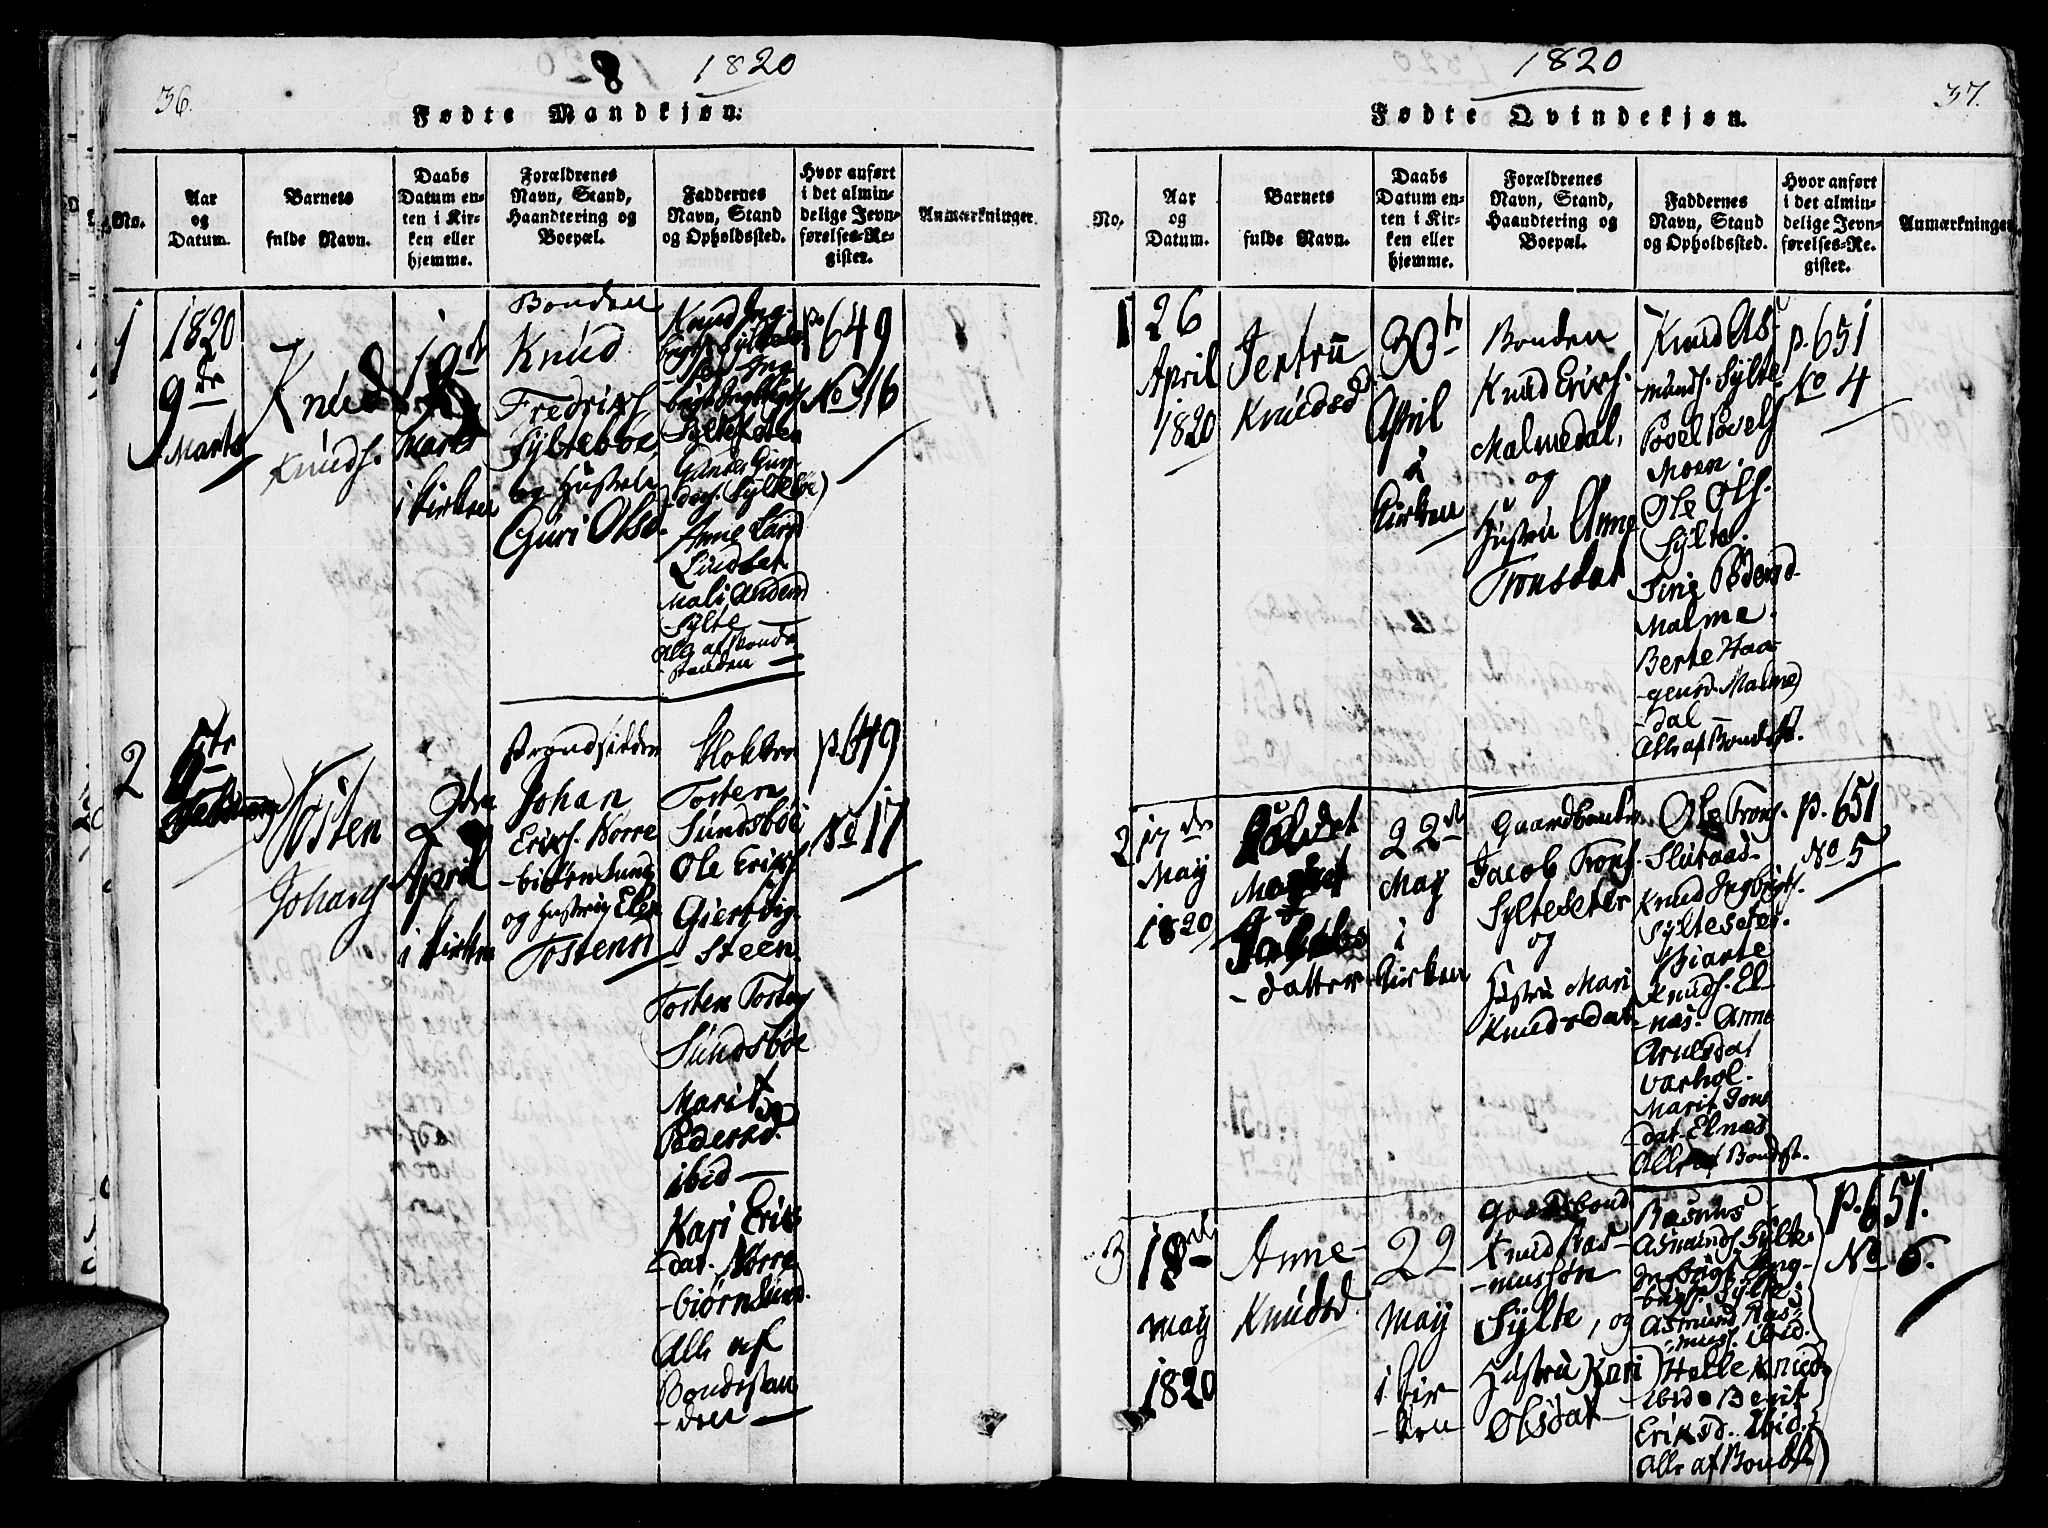 36.
8 1820
Fødte Mandkjøn.
No.
Aar
og
Datum.
Barnets
fulde Navn.
Daabs
Datum en-
ten i Kir-
ken eller
hjemme.
Forældrenes
Navn, Stand,
Haandtering og
Boepæl.
Faddernes
Navn, Stand
og Opholdssted.
Hvor anført
i det almin-
delige Jevn-
førelses-Re-
gister.
Anmærkninger.
1
1820
9de
Marts
Knud
Knuds.
Marts
i Kirken
Bonden
Knud
Fredrichs.
Sylteboe,
og Hustrue
Guri Olsd.
Knud Ing-
Anne Larsd
Mali
Sylte
Alle af Bonde
standen
p 649
No 16
2
5te
Februar
Tosten
Johans
2den
April
i Kirken
Strandsidder
Johan
Erichs. Norre
-biørnsund
og Hustru Elen
Tostensd
Klokker
Tosten
Sundsbøe
Ole Erichs
Giertvig-
Steen.
Tosten Tostens
Sundsbøe
Marit
Pedersd.
ibid
Kari Eriks
dat. Nørre
-biørnsund.
Alle af
Bondestan
-den
p. 649
No 17
1820
37.
Fødte Qvindekjøn.
No.
Aar
og
Datum.
Barnets
fulde Navn.
Daabs
Datum en-
ten i Kir-
ken eller
hjemme.
Forældrenes
Navn, Stand,
Haandtering og
Boepæl.
Faddernes
Navn, Stand
og Opholdssted.
Hvor anført
i det almin-
delige Jevn-
førelses-Re-
gister.
Anmærkninger.
1
26
April
1820
Jertru
Knudsd.
30te
April
i
Kirken
Bonden
Knud Erichs.
Malmedal,
og
Hustru Anne
Tronsdat
Knud As-
munds. Sylte
Povel Povels
Moen.
Ole Ols.
Sylte.
Siri Pedersd
Malme.
Berte Haa-
gensd. Malme
dal
Alle af Bondest.
p. 651
No 4
2
17de
May
1820
datter
22de
May
i
Kirken
Gaardbonden
Jacob Trons.
Sylteseter
og
Hustru Mari
Knudsdat
Ole Trons.
Sluraas-
Knud Ingbrigts.
Sylteseter.
Knuds. El-
nas. Anne
Arnesdat
Varhol-
Marit Jons
dat. Elnæs
Alle af Bondst.
p. 651
No 5
3
18de
May
1820
Anne
Knudsd.
22
May
i Kir-
-ken
Gaardbond
Knud Ras-
-mussøn
Sylte, og
Hustru Kari
Olsdat
Rasmus
Asmunds. Sylte
Ingbrigt Ing-
brigts. Sylte
Asmund Ras-
mus. ibid.
Helle Knudsd
ibid. Berit
Eriksd. ibid.
Alle af Bondst
p. 651.
No 6.